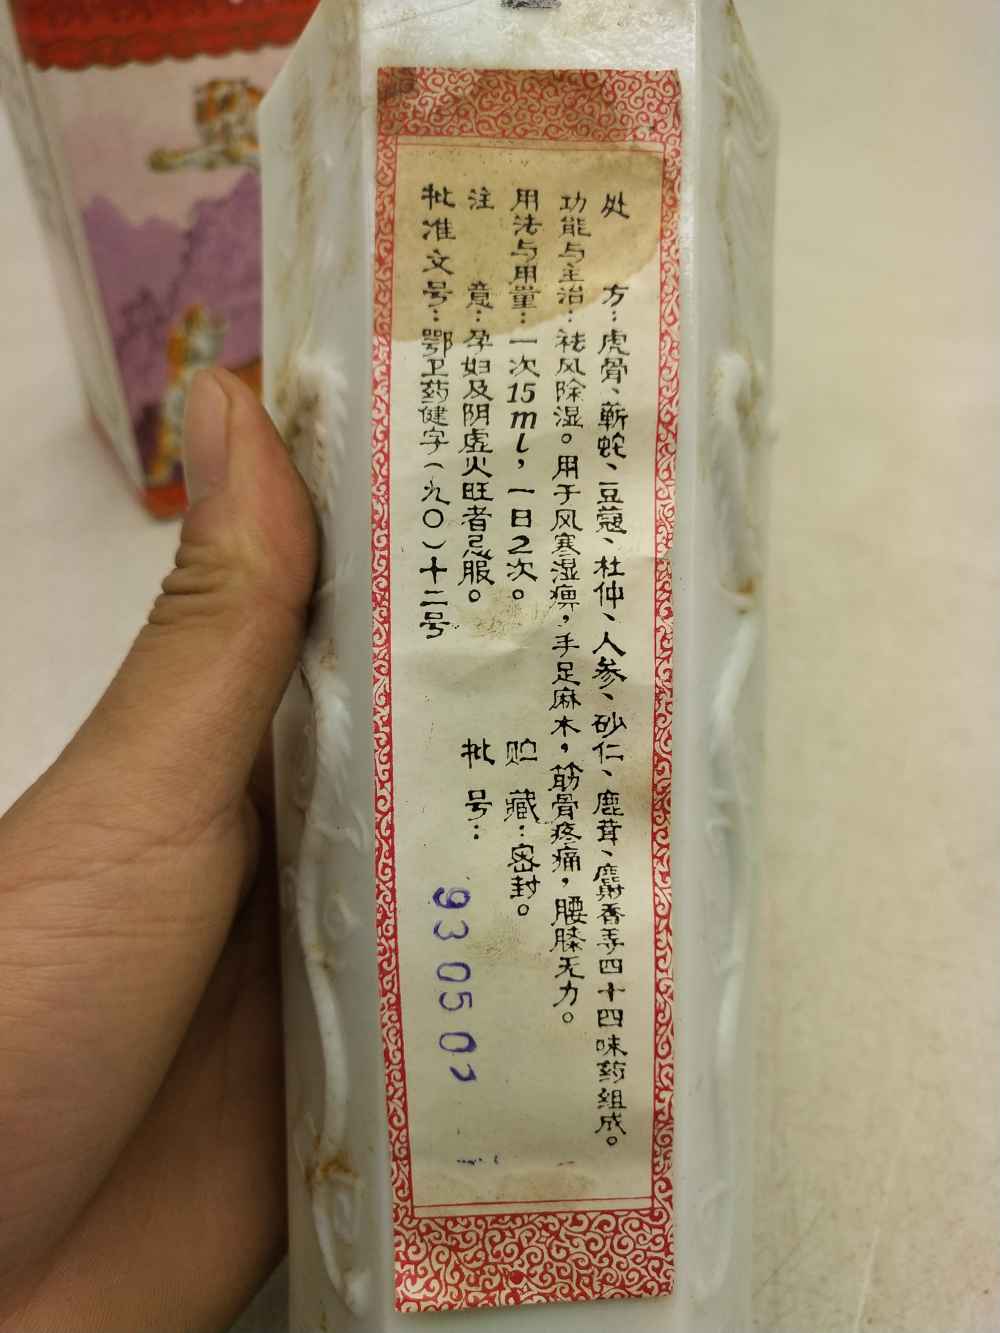 处方：虎骨、蕲蛇、豆蔻、杜仲、人参、砂仁、鹿茸、麝香等四十四味药组成。
功能与主治：祛风除湿。用于风寒湿痹，手足麻木，筋骨疼痛，腰膝无力。
用法与用量：一次15ml，一日2次。
贮藏：密封。
注意：孕妇及阴虚火旺者忌服。
批号：
批准文号：鄂卫药健字（九〇）十二号
930502